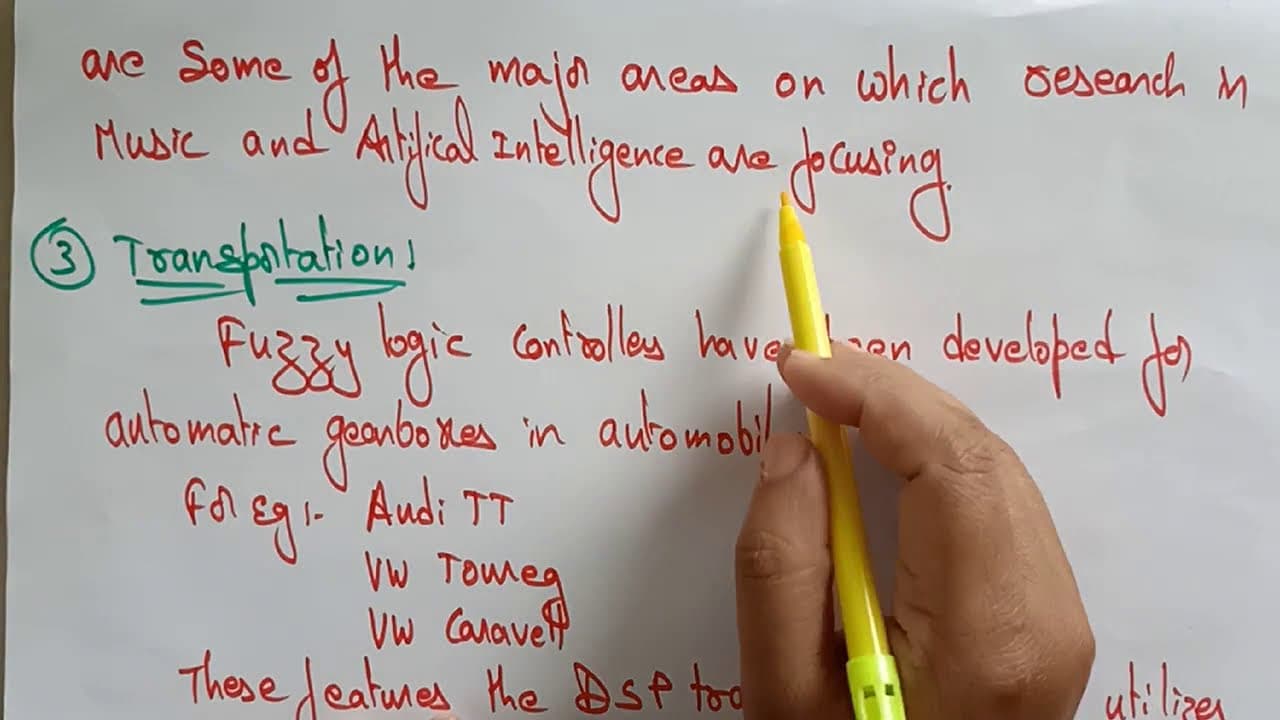 are Some of the major areas on which research in
Music and Artifical Intelligence are focusing.
③ Transportation:
Fuzzy logic controllers have been developed for
automatic gearboxes in automobil
For Eg:- Audi TT
VW Toureg
VW Caravell
These features the DSP utilizes